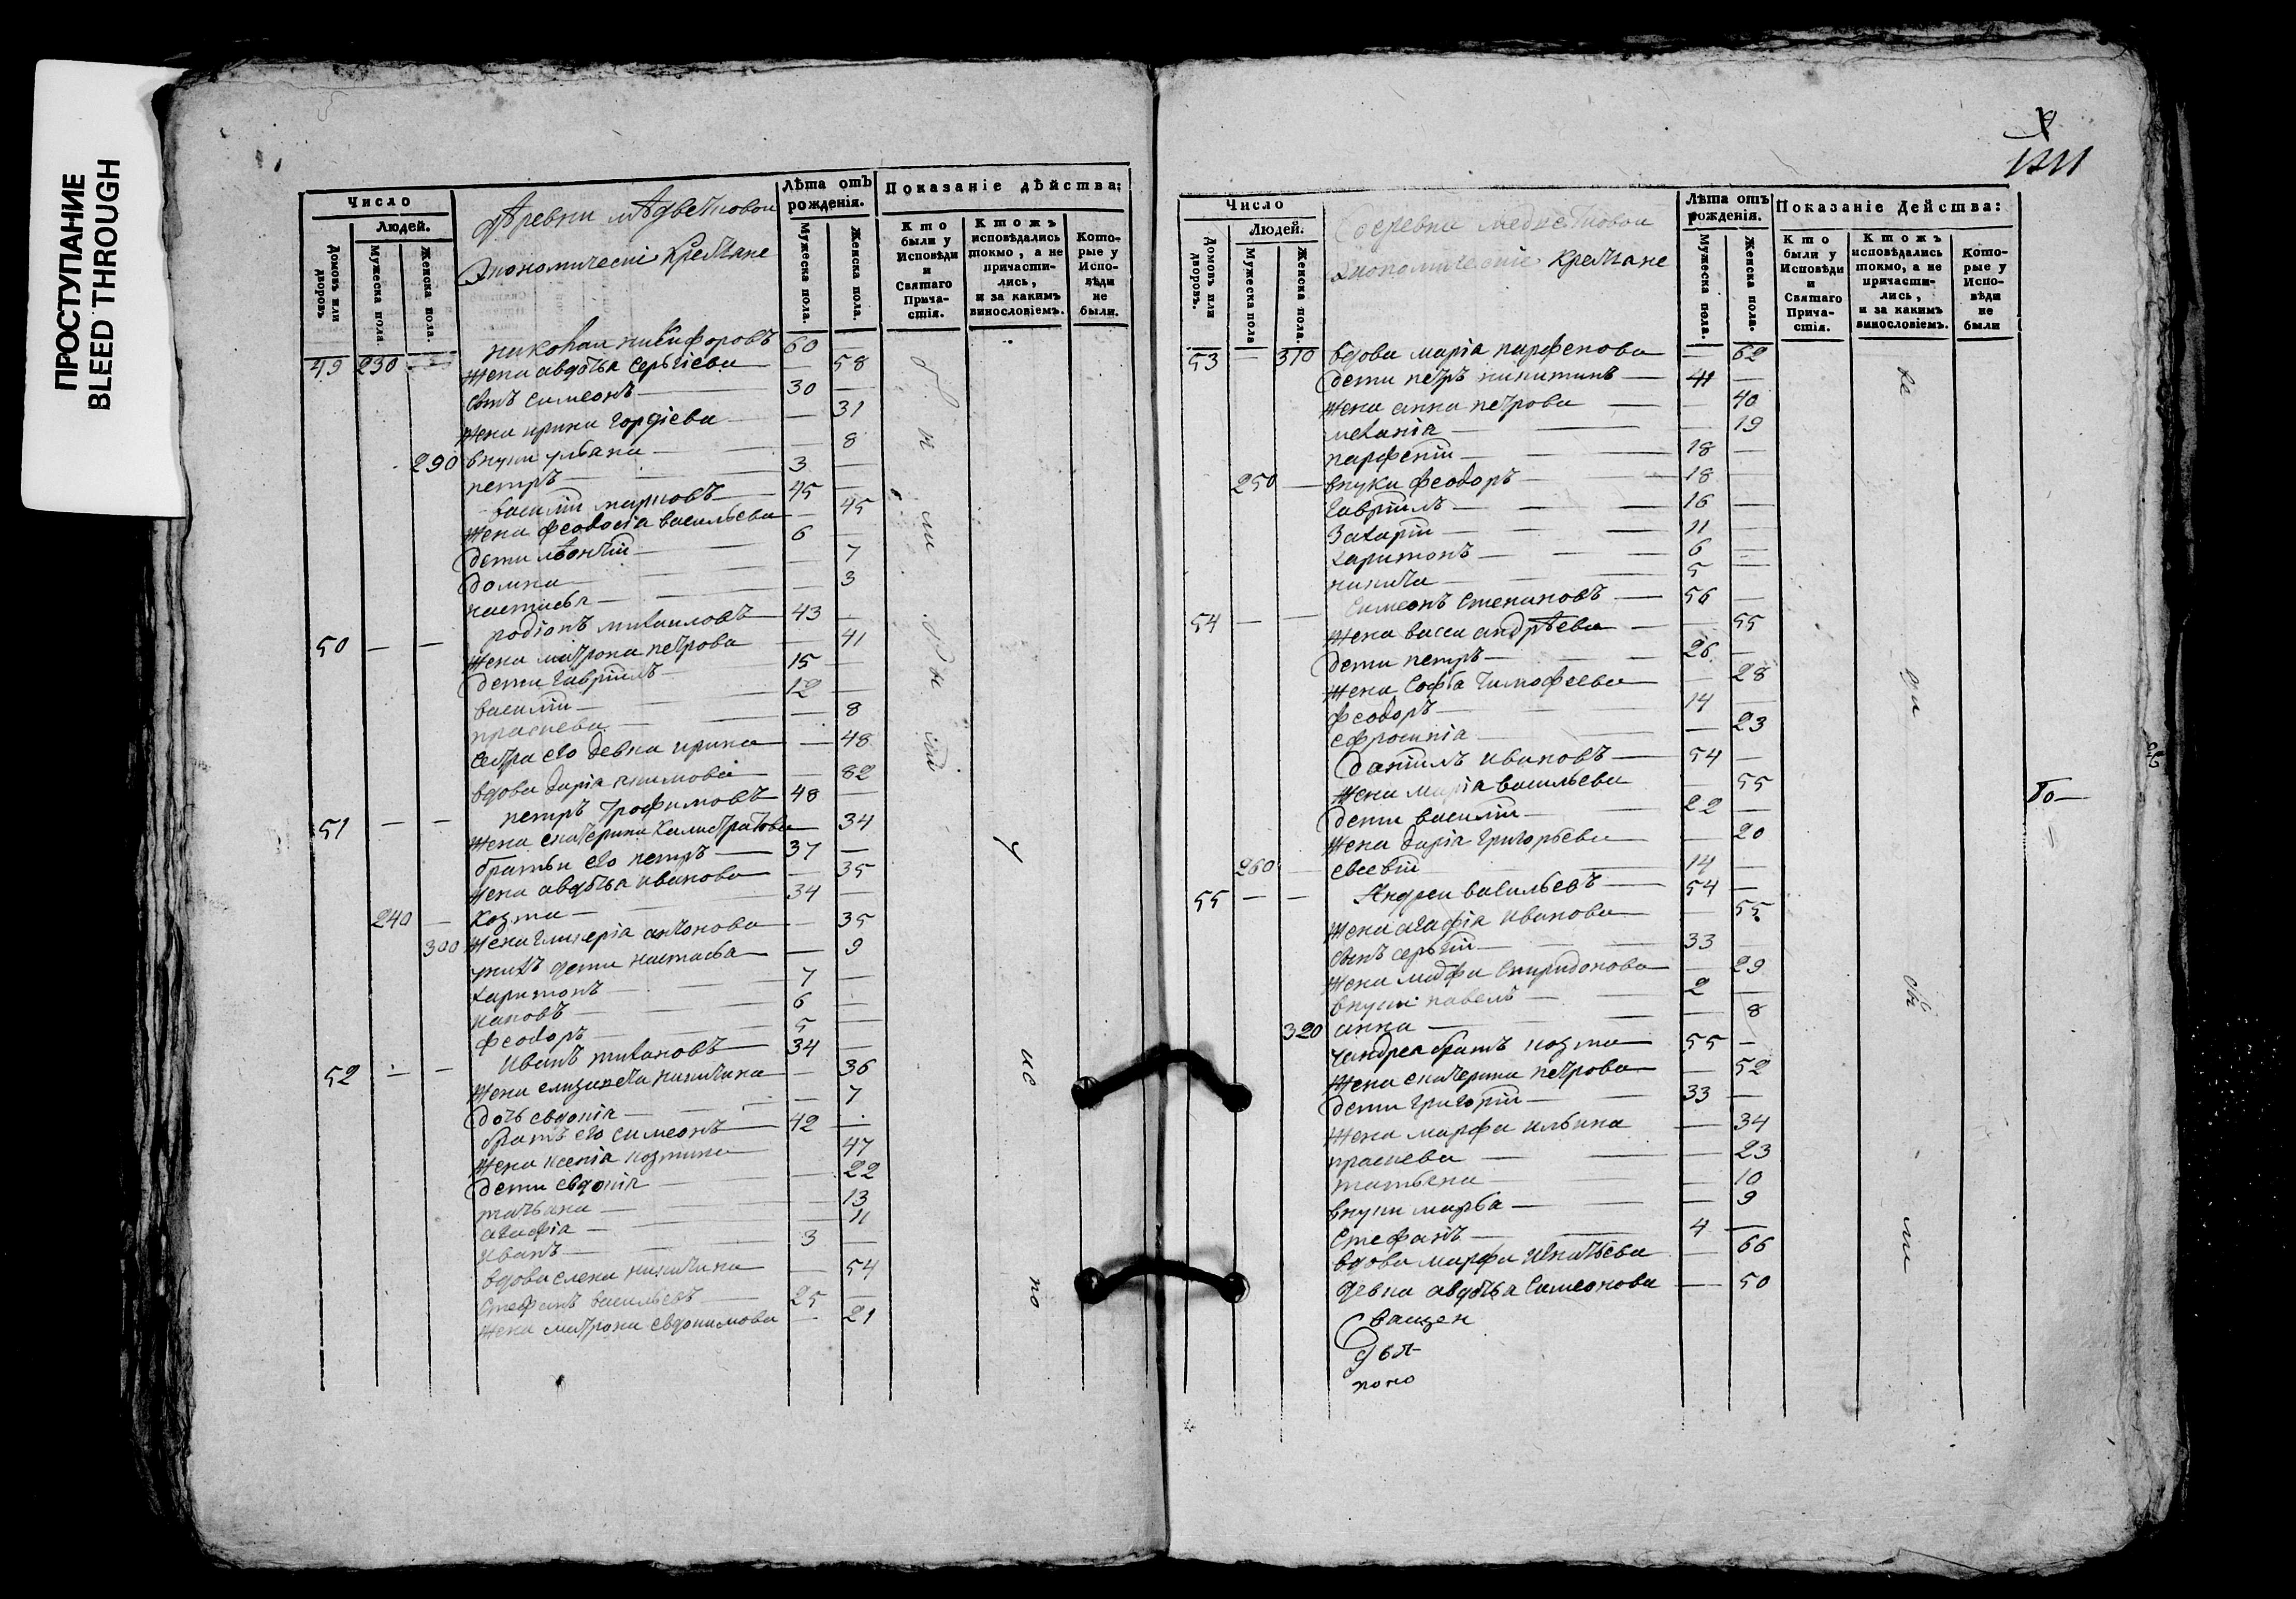 ПРОСТУПАНИЕ
BLEED THROUGH
Число
Людей.
Домовъ или дворовъ
Мужеска пола.
Женска пола.
деревни медветковои
Экономическiе крестiане
Лѣта отъ рожденія.
Мужеска пола.
Женска пола.
Показаніе дѣйства:
Кто были у Исповѣди и Святаго Причастія.
Ктожъ исповѣдались токмо, а не причастились, и за какимъ винословіемъ.
Которые у Исповѣди не были.
49 230 николаи никифоровъ 60 —
жена авдотья сергiева — 58
сынъ симеонъ — 30 —
жена ирина гордiева — 31
290 внуки ульяна — 8
петръ — 3 —
василiи марковъ 45 —
жена феодосiа васильева — 45
дети леонтiи — 6 —
домна — 7
настасья — 3
50 — — родiонъ михаиловъ 43 —
жена матрона петрова — 41
дети гаврiилъ — 15 —
василiи — 12 —
прасцева — 8
сестра его девка ирина — 48
вдова дарiа климова — 82
51 — — петръ трофимовъ 48 —
жена екатерина калистратова — 34
братья его петръ — 37 —
жена авдотья иванова — 35
240 — козма — 34 —
300 жена гликерiа антонова — 35
у нихъ дети настасья — 9
харитонъ — 7 —
иаковъ — 6 —
феодоръ — 5 —
52 — — иванъ 34 —
жена елизавета никитина — 36
дочь евдокiа — 7
братъ его симеонъ — 42 —
жена ксенiа козмина 47
дети евдокiа — 22
татьяна — 13
агафiа — 11
иванъ — 3 —
вдова елена никитина — 54
стефанъ васильевъ — 25 —
жена матрона евдокимова — 21
у
ис
по
Число
Людей.
Домовъ или дворовъ.
Мужеска пола
Женска пола.
деревни медветковои
Экономическiе крестiане
Лѣта отъ рожденія.
Мужеска пола.
Женска пола.
Показаніе Дейсшва:
Кто были у Исповѣди и Святаго Причастія.
Ктожъ исповѣдались токмо, а не причастились, и за какимъ винословіемъ.
Которые у Исповѣди не были
53 — 310 вдова марiа парфенова — 62
дети петръ никитинъ — 41 —
жена анна петрова — 40
меланiа — 19
парфенiи — 18 —
250 — внуки феодоръ — 18 —
гаврiилъ — 16 —
захарiи — 11 —
харитонъ — 6 —
никита — 5 —
54 — — симеонъ степановъ — 56 —
жена васса андрѣева — 55
дети петръ — 26 —
жена софья тимофеева — 28
феодоръ — 14 —
ефросинiа — 23
данiилъ ивановъ — 54 —
жена марiа васильева 55
дети василiи — 22 —
жена дарiа григорьева — 20
260 — евсевiи 14 —
55 — — Андреи васильевъ — 54 —
жена агафiа иванова — 55
сынъ сергiи — 33 —
жена марфа спиридонова — 29
внуки павелъ — 2 —
320 анна — 8
у андреа братъ козма 55 —
жена екатерина петрова — 52
дети григорiи — 33 —
жена марфа ильина — 34
прасцева — 23
татьяна — 10
внуки марфа — 9
стефанъ — 4 —
вдова марфа игнатьева — 66
девка авдотья симеонова — 50
Сващен
дья
поно
не
ми